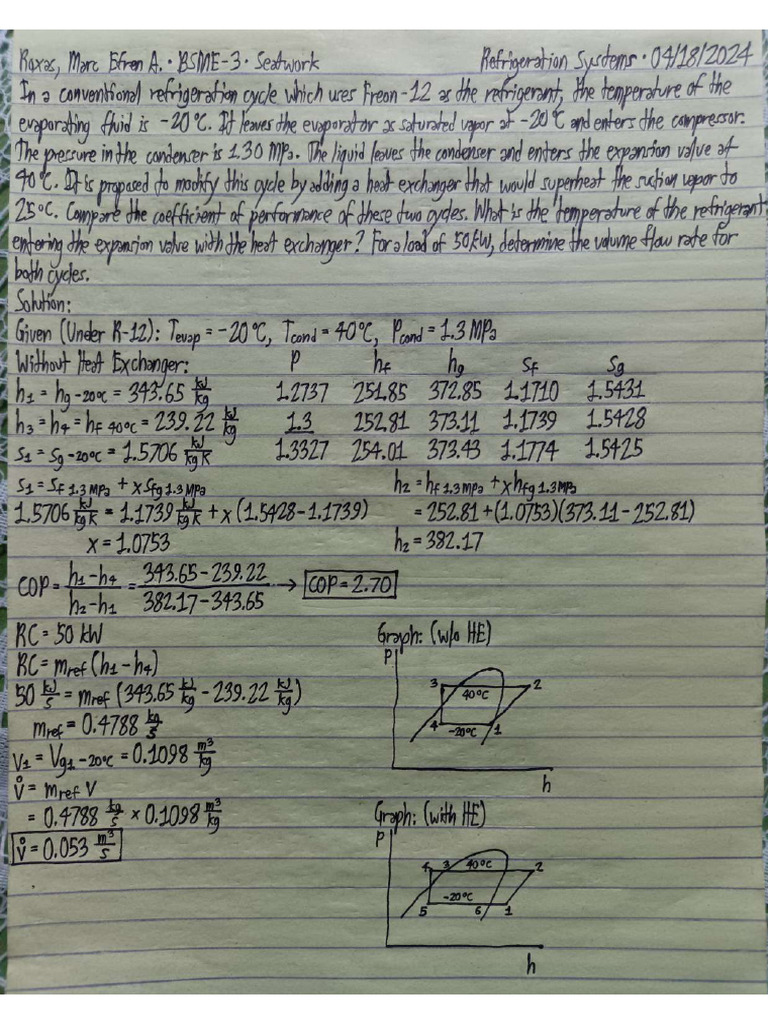 Roxas, Marc Efren A. · BSME-3 · Seatwork
Refrigeration Systems · 04/18/2024
In a conventional refrigeration cycle which uses Freon-12 as the refrigerant, the temperature of the
evaporating fluid is -20°C. It leaves the evaporator as saturated vapor at -20°C and enters the compressor.
The pressure in the condenser is 1.30 MPa. The liquid leaves the condenser and enters the expansion valve at
40°C. It is proposed to modify this cycle by adding a heat exchanger that would superheat the suction vapor to
25°C. Compare the coefficient of performance of these two cycles. What is the temperature of the refrigerant
entering the expansion valve with the heat exchanger? For a load of 50kW, determine the volume flow rate for
both cycles.
Solution:
Given (Under R-12): Tevap = -20°C, Tcond = 40°C, Pcond = 1.3 MPa
Without Heat Exchanger: P hf hg sf sg
h1 = hg -20°C = 343.65 kJ/kg 1.2737 251.85 372.85 1.1710 1.5431
h3 = h4 = hf 40°C = 239.22 kJ/kg 1.3 252.81 373.11 1.1739 1.5428
s1 = sg -20°C = 1.5706 kJ/kg K 1.3327 254.01 373.43 1.1774 1.5425
s1 = sf 1.3 MPa + x sfg 1.3 MPa
1.5706 kJ/kg K = 1.1739 kJ/kg K + x (1.5428 - 1.1739)
x = 1.0753
h2 = hf 1.3 MPa + x hfg 1.3 MPa
= 252.81 + (1.0753)(373.11 - 252.81)
h2 = 382.17
COP = h1 - h4 / h2 - h1 = 343.65 - 239.22 / 382.17 - 343.65 → COP = 2.70
RC = 50 kW
RC = mref (h1 - h4)
50 kJ/s = mref (343.65 kJ/kg - 239.22 kJ/kg)
mref = 0.4788 kg/s
V1 = Vg1 -20°C = 0.1098 m³/kg
V̊ = mref V
= 0.4788 kg/s × 0.1098 m³/kg
V̊ = 0.053 m³/s
Graph: (w/o HE)
P
3 2
40°C
4 1
-20°C
h
Graph: (with HE)
P
4 3 40°C 2
-20°C
5 6 1
h